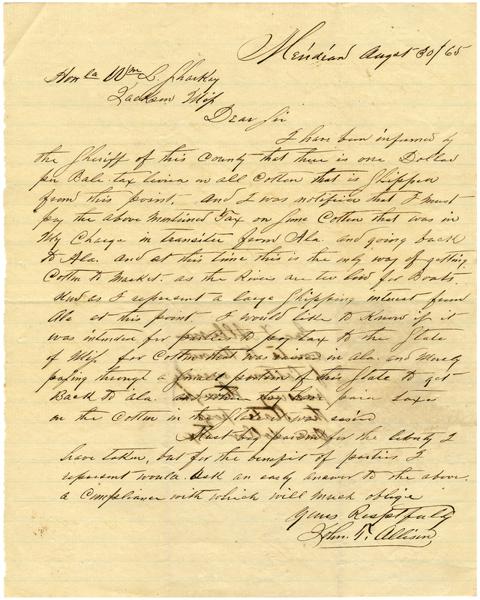 Meridian Augst 30/65
Honla Wm L. Sharkey
Jackson Miss
Dear Sir
I have been informed by
the Sheriff of this County that there is one Dollar
per Bale tax levied on all Cotton that is Shipped
from this point. And I was notified that I must
pay the above mentioned Tax on some Cotton that was in
My Charge in transider from Ala. and going back
to Ala. And at this time this is the only way of getting
Cotton to Market. as the Rivers are too low for Boats.
And as I represent a large Shipping interest from
Ala at this point. I would like to Know if it
was intended for parties to pay tax to the State
of Miss for Cotton that was raised in Ala. and merely
passing through a small portion of this State to get
Back to Ala. and when they have paid taxes
on the Cotton in the State it was raised
Must beg pardon for the liberty I
have taken, but for the benefit of parties I
represent would ask an early answer to the above.
a Compliance with which will much oblige
Yours Respetfully
Jthn. T. Allison